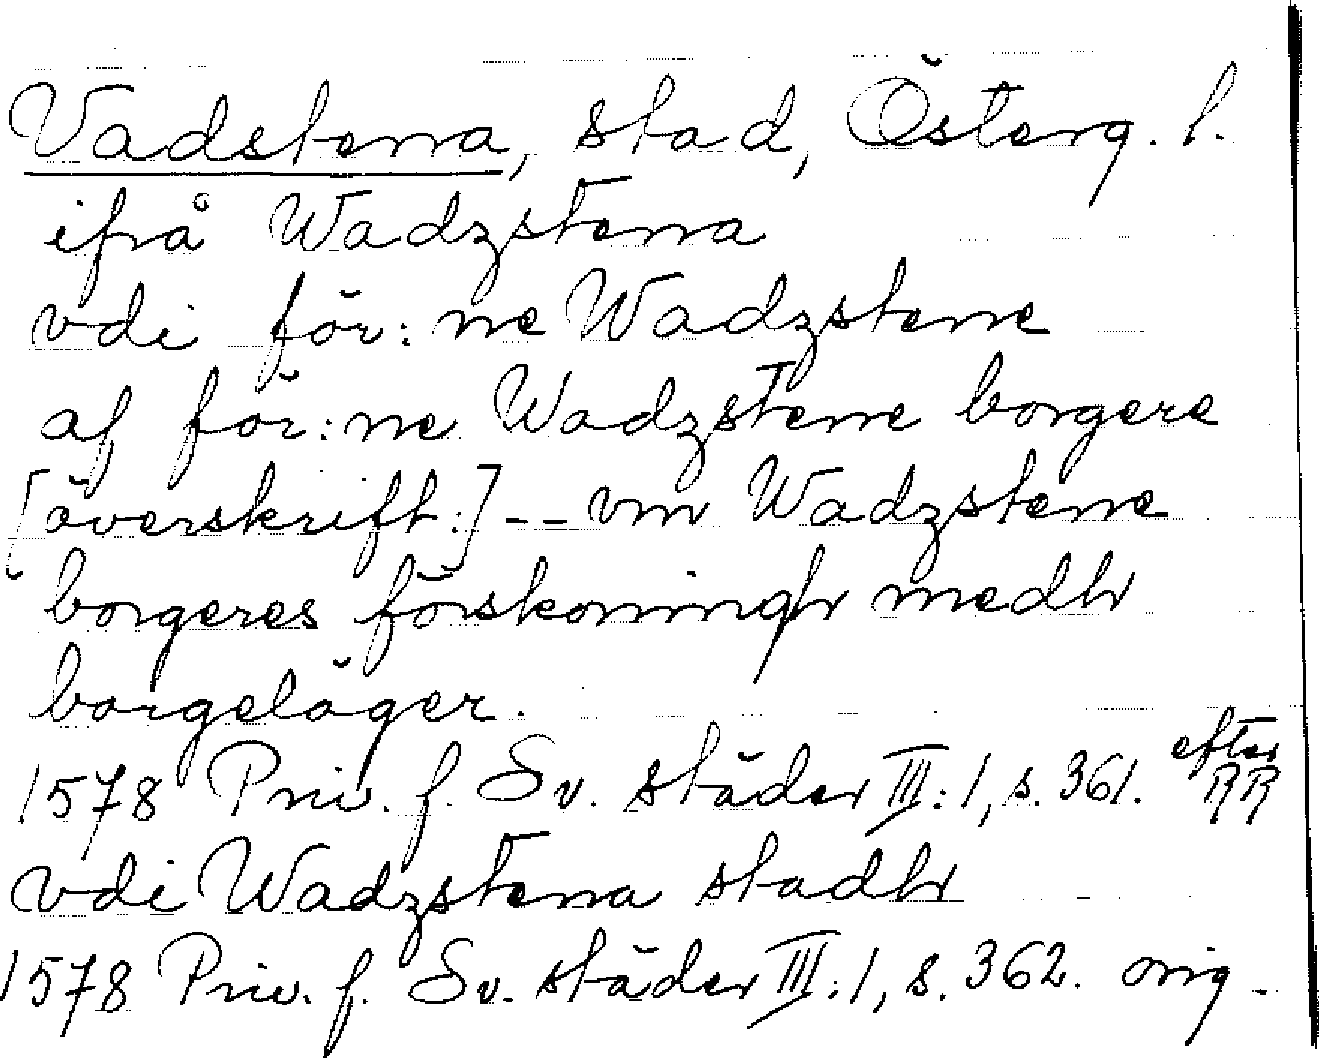 Vadstena, stad, Österg. l.
ifrå Wadzstena
vdi för:ne Wadzstene
af för:ne Wadzstene borgere
[överskrift:] -- vm Wadzstene
borgeres förskoningh medh
borgeläger.
1578 Priv. f. Sv. städer III:1, s. 361. efter RR
vdi Wadzstena stadh
1578 Priv. f. Sv. städer III:1, s. 362. orig.